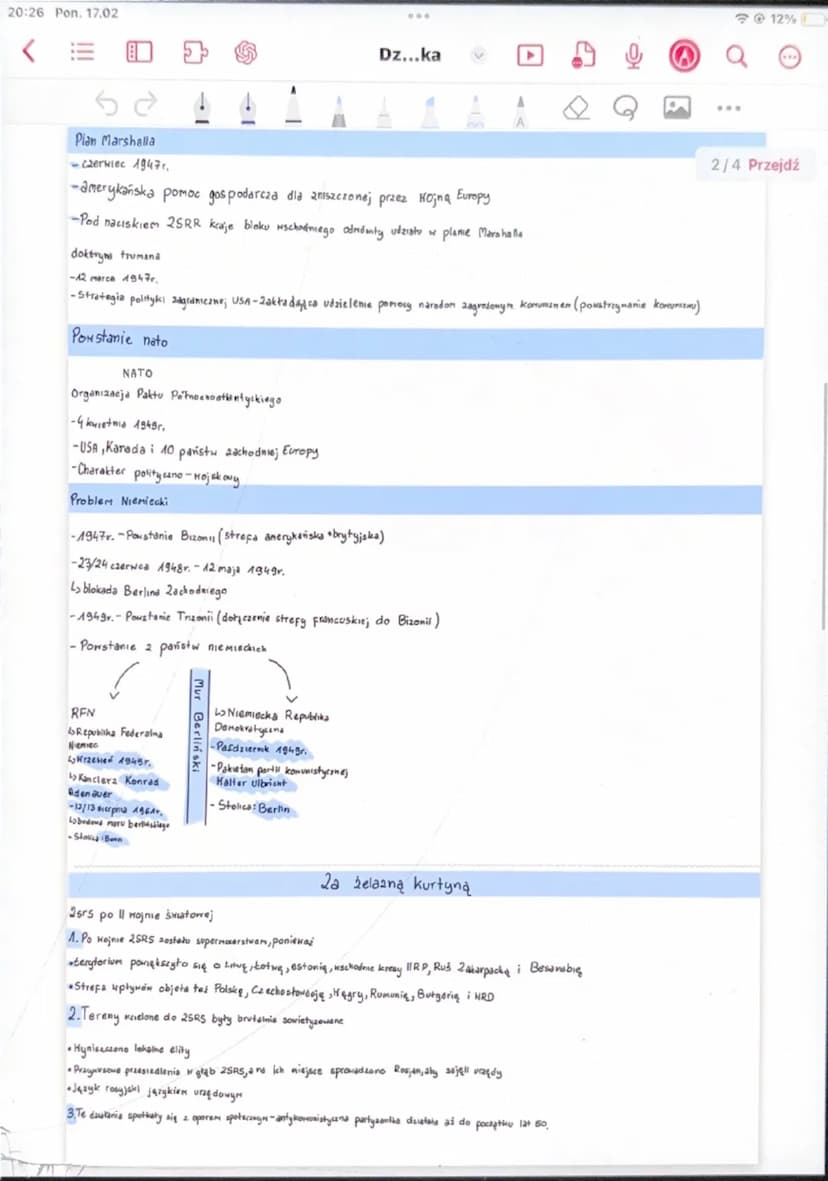 20:26 Pon. 17.02
12%
Dz...ka
2/4 Przejdź
Plan Marshalla
- czerwiec 1947r.
-amerykańska pomoc gospodarcza dla zniszczonej przez wojną Europy
-Pod naciskiem ZSRR kraje bloku wschodniego odmówiły udziału w planie Marshalla
doktryna trumana
-12 marca 1947r.
-Strategia polityki zagranicznej USA-zakładająca udzielenie pomocy narodom zagrożonym komunizmem (powstrzymanie komunizmu)
Powstanie nato
NATO
Organizacja Paktu Północnoatlantyckiego
-4 kwietnia 1949r.
-USA, Kanada i 10 państw zachodniej Europy
-Charakter polityczno-wojskowy
Problem Niemiecki
-1947r. -Powstanie Bizonii (strefa amerykańska +brytyjska)
-23/24 czerwca 1948r. - 12 maja 1949r.
↳ blokada Berlina Zachodniego
-1949r. - Powstanie Trizonii (dołączenie strefy francuskiej do Bizonii)
- Powstanie 2 państw niemieckich
Mur Berliński
RFN
↳ Republika Federalna
Niemiec
↳ Wrzesień 1949r.
↳ Kanclerz Konrad
Adenauer
-12/13 sierpnia 1961r.
↳ budowa muru berlińskiego
- Stolica: Bonn
↳ Niemiecka Republika
Demokratyczna
-Październik 1949r.
-Pakistan partii komunistycznej
Walter Ulbricht
- Stolica: Berlin
Za żelazną kurtyną
ZSRS po II wojnie światowej
1. Po wojnie ZSRS zostało supermocarstwem, ponieważ
•terytorium powiększyło się o Litwę, Łotwę, estonię, wschodnie kresy IIRP, Ruś Zakarpacką i Besarabię
•Strefa wpływów objęła też Polskę, Czechosłowację, Węgry, Rumunię, Bułgarię i NRD
2. Tereny wcielone do ZSRS były brutalnie sowietyzowane
• Wyniszczono lokalne elity
• Przymusowe przesiedlenia w głąb ZSRS, a na ich miejsce sprowadzano Rosjan, aby zajęli urzędy
•Język rosyjski językiem urzędowym
3. Te działania spotkały się z oporem społecznym-antykomunistyczna partyzantka działała aż do początku lat 50.